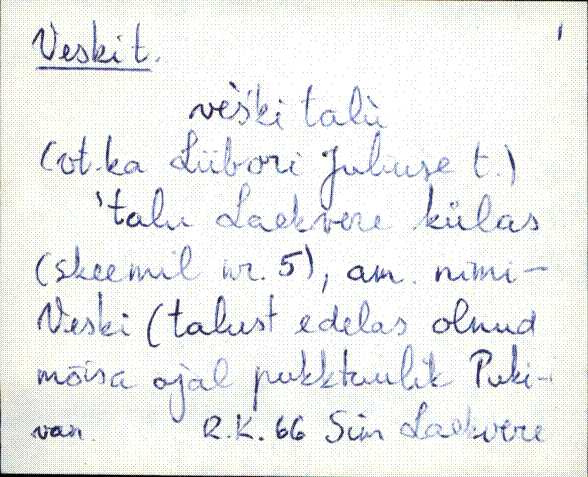 Veski t.
vèški talù
(vt.ka Liibori Juhuse t.)
'talu Laekvere külas
(skeemil nr. 5), am. nimi-
Veski (talust edelas olnud
mõisa ojal pukktuulik Puki-
van. R.K. 66 Sim Laekvere